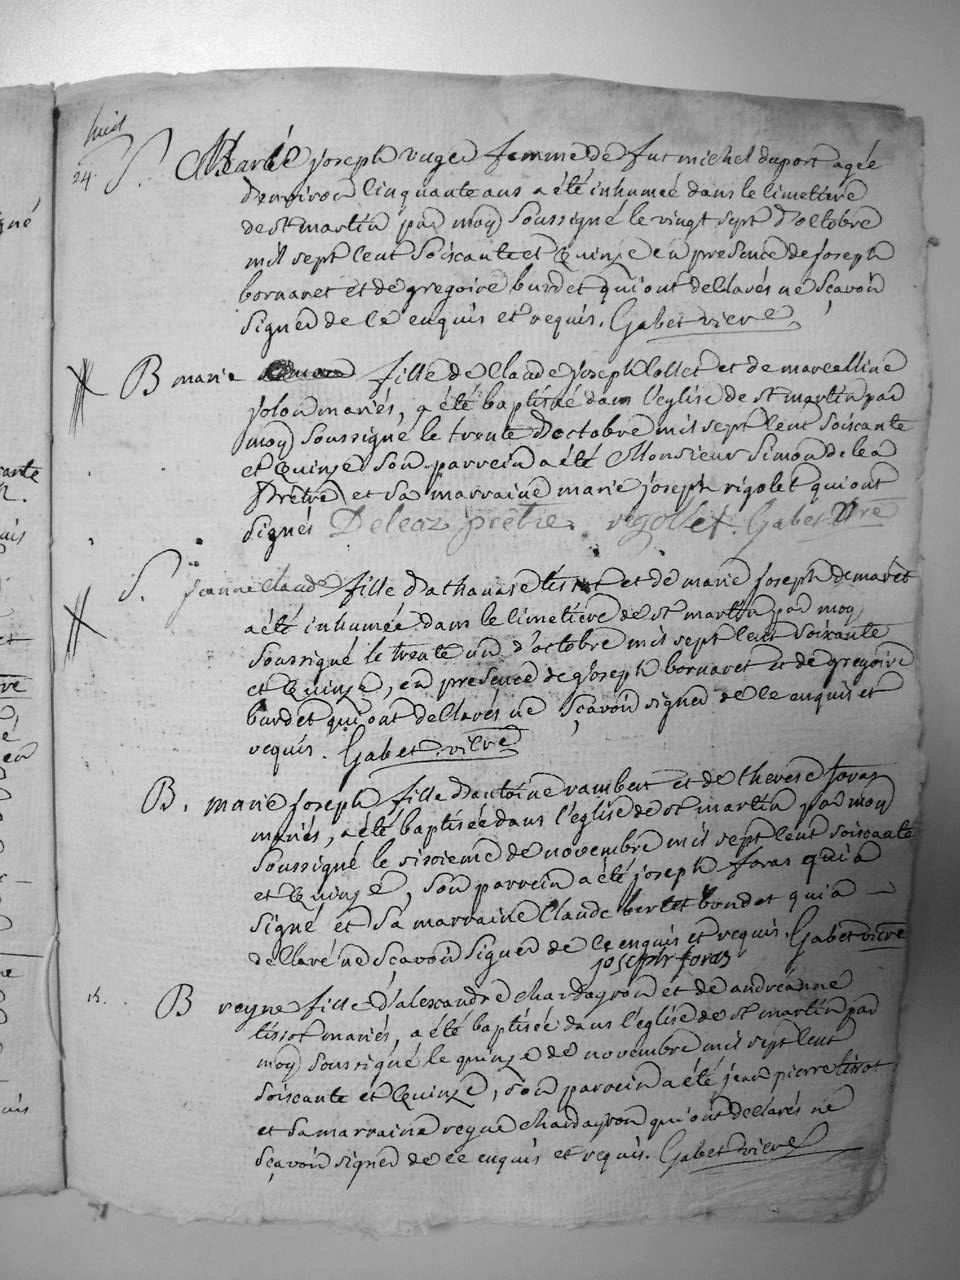 24. S. Marie joseph vuger femme de fut michel duport agée
d'environ Cinquante ans a été inhumeé dans le Cimettiere
de st martin par moy Soussigné le vingt sept d'octobre
mil sept Cent Soiscante et Quinze en presence de joseph
bornaret et de gregoire burdet qui ont declarés ne Scavoir
Signer de Ce enquis et requis. Gabet vicre
B marie fille de Claude joseph Collet et de marcelline
jolon mariés, a été baptisée dans l'eglise de st martin par
moy Soussigné le trente d'octobre mil sept Cent Soiscante
et Quinze Son parrein a été Monsieur Simon deléa
Prêtre et Sa marraine marie joseph rigolet qui ont
signés Deleaz prêtre rigollet Gabet vicre
S. jeanne Claude fille d'athanase tissot et de marie joseph demaret
a été inhumée dans le Cimetiére de st martin par moy
Soussigné le trente un d'octobre mil sept Cent Soixante
et Quinze, en presence de joseph bornaret et de gregoire
burdet qui ont declarés ne Sçavoir signer de Ce enquis et
requis. Gabet vicre
B. marie joseph fille d'antoine rambert et de therese foraz
mariés, a été baptisée dans l'eglise de st martin par moy
Soussigné le sisieme de novembre mil sept Cent soiscante
et Quinze, Son parrein a été joseph foras qui a
Signé et Sa marraine Claude bertet bondet qui a
declaré ne Scavoir Signer de Ce enquis et requis. Gabet vicre
joseph foraz
15. B reyne fille d'alexandre chardagron et de andréanne
tissot mariés, a été baptisée dans l'église de st martin par
moy Soussigné le quinze de novembre mil sept Cent
soiscante et Quinze, Son parrein a été jean pierre tissot
et Sa marraine reyne chardagron qui ont declarés ne
sçavoir signer de ce enquis et requis. Gabet vicre